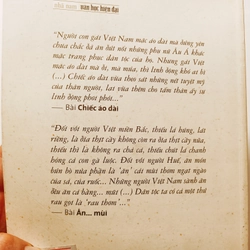 nhà nam văn học hiện đại
"Người con gái Việt Nam mặc áo dài mà đứng yên
chưa chắc đã ăn đứt nổi những phụ nữ Âu Á khác
mặc trang phục dân tộc của họ. Nhưng gái Việt
mặc áo dài mà đi, mà múa, thì linh động khó ai bì
(...) Chiếc áo dài vừa theo sát những nét tuyệt mỹ
của thân người, lại vừa thêm cho tấm thân ấy sự
linh động phơi phới..."
— Bài Chiếc áo dài
"Đối với người Việt miền Bắc, thiếu lá húng, lát
riềng, lá địa thịt cầy không còn ra địa thịt cầy nữa,
thiếu thì là không ra chả cá, thiếu chút lá chanh
hỏng cả con gà luộc. Đối với người Huế, ăn món
bún bò mùi phận là 'ăn' cái mùi thơm ngạt ngào
của sả, của ruốc... Những người Việt Nam sành ăn
đều ăn cả bằng... mùi (...) Dân tộc ta có cả một thứ
rau gọi là 'rau thơm'..."
— Bài Ăn... mùi